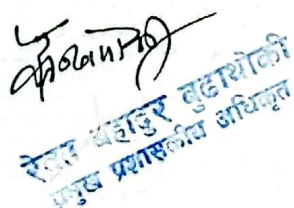 रेवत बहादुर बुढाथोकी
प्रमुख प्रशासकीय अधिकृत